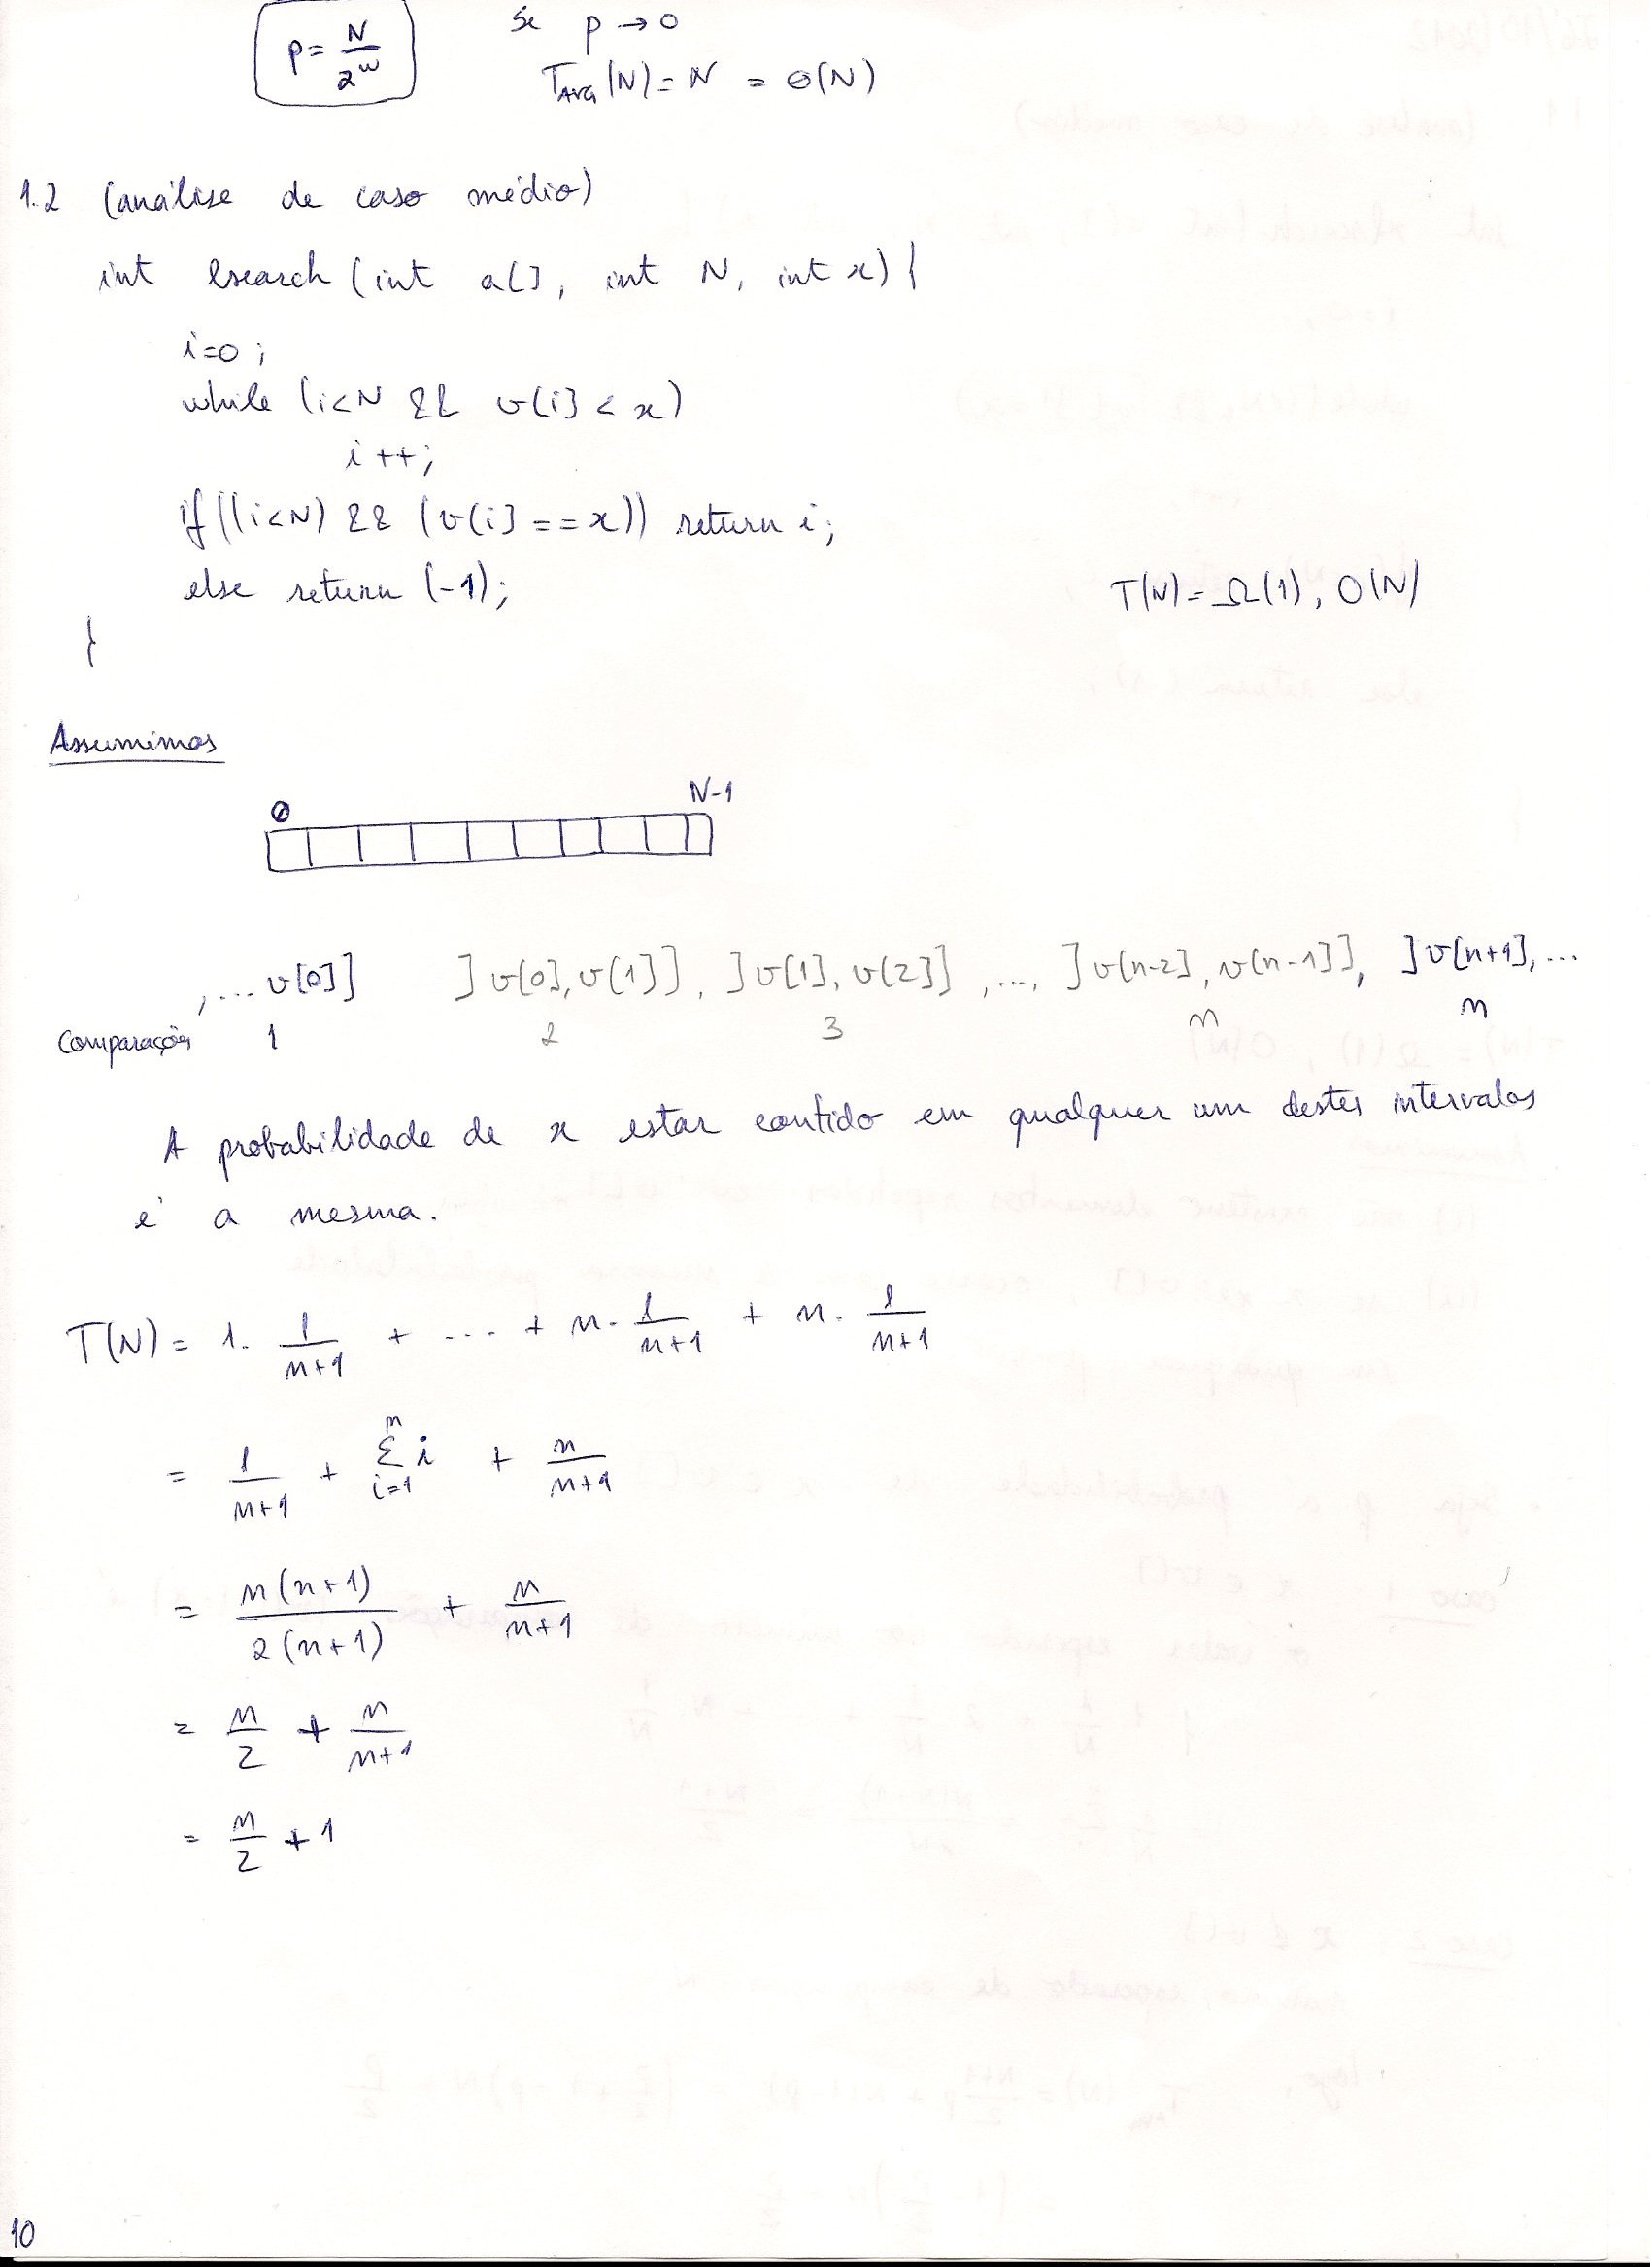 p = N / 2^w    Se p → 0
T_AVG(N) = N = Θ(N)
1.2 (análise de caso médio)
int lsearch (int a[], int N, int x) {
i=0;
while (i<N && v[i] < x)
i++;
if ((i<N) && (v[i] == x)) return i;
else return (-1);
T(N) = Ω(1), O(N)
}
Assumimos
0 N-1
, ... v[0]] ]v[0], v[1]], ]v[1], v[2]], ..., ]v[n-2], v[n-1]], ]v[n+1], ...
Comparações 1 2 3 n n
A probabilidade de x estar contido em qualquer um destes intervalos
é a mesma.
T(N) = 1. 1/(n+1) + ... + n. 1/(n+1) + n. 1/(n+1)
= 1/(n+1) + Σ_{i=1}^{n} i + n/(n+1)
= n(n+1) / 2(n+1) + n/(n+1)
= n/2 + n/(n+1)
= n/2 + 1
10